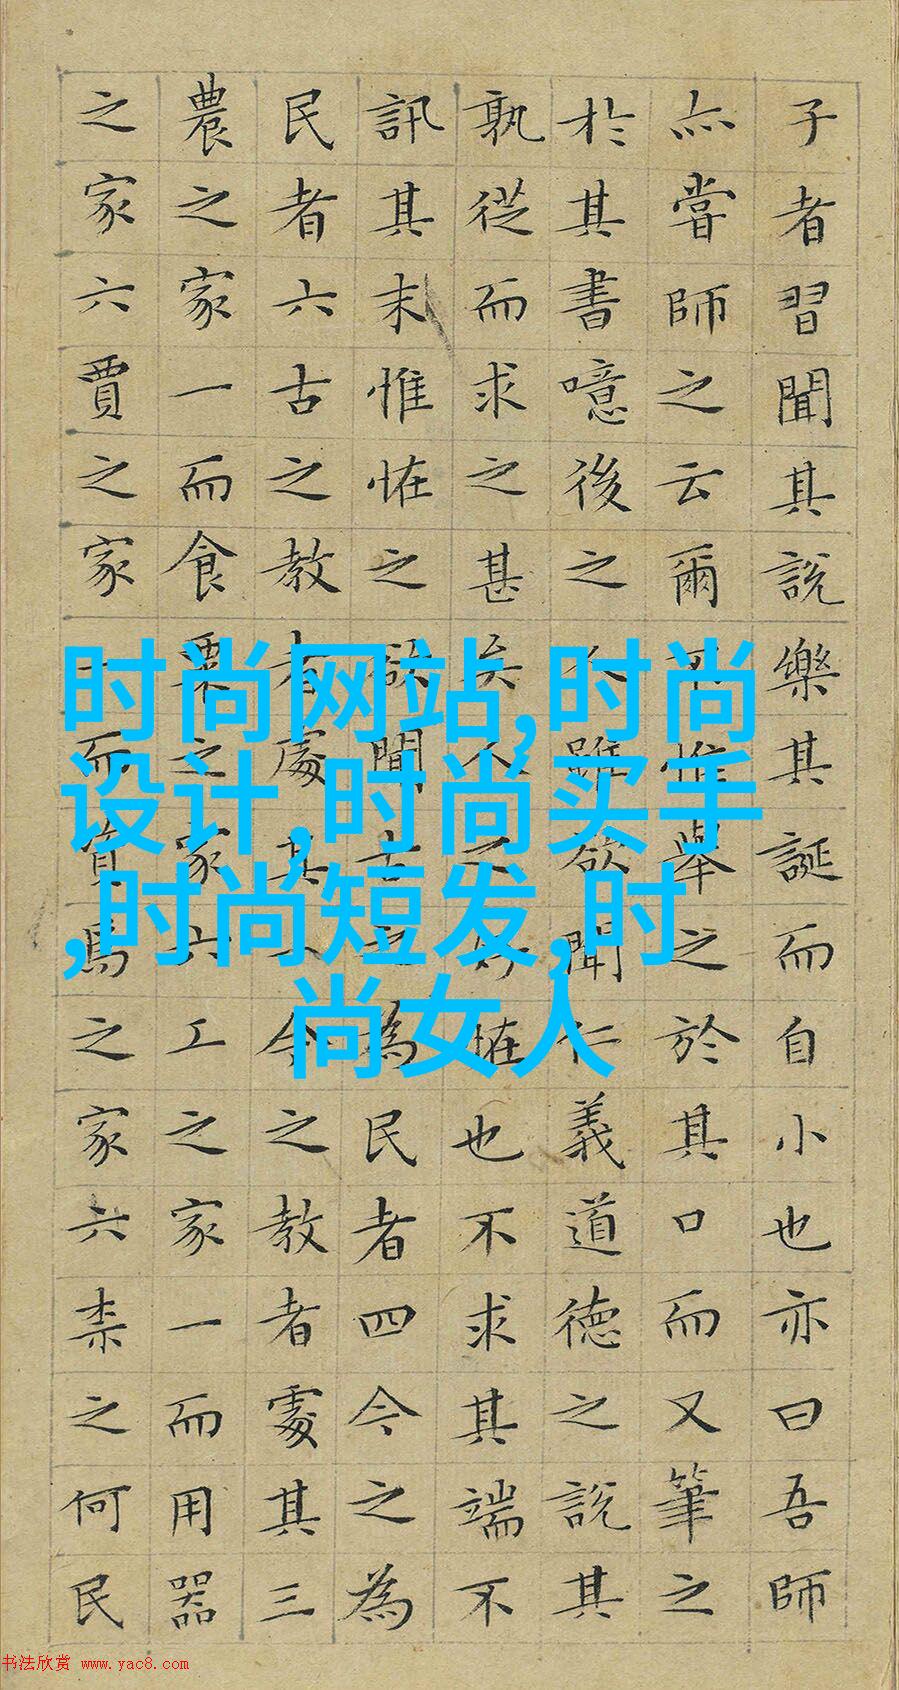 子者習聞其說樂其誕而自小也亦曰吾師
亦嘗師之云爾不惟舉之於其口而又筆之
於其書噫後之人雖欲聞仁義道德之說其
孰從而求之甚矣人之好怪也不求其端不
訊其末惟怪之欲聞古之為民者四今之為
民者六古之教者處其一今之教者處其三
農之家一而食粟之家六工之家一而用器
之家六賈之家一而資焉之家六柰之何民
时尚网站,时尚
设计,时尚买手
,时尚短发,时
尚女人
书法欣赏 www.yac8.com